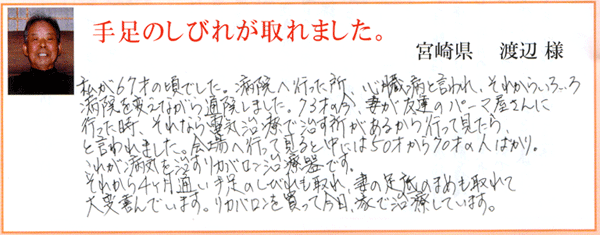 手足のしびれが取れました。
宮崎県　渡辺 様
私が67才の頃でした。病院へ行った所、心臓病と言われ、それからいろいろ
病院を変えながら通院しました。73才の今、妻が友達のパーマ屋さんに
行った時、それなら電気治療で治す所があるから行って見たら、
と言われました。会場へ行って見ると中には50才から90才の人ばかり。
これが病気を治すリカバロン治療器です。
それから4ヶ月通い手足のしびれも取れ、妻の足底のまめも取れて
大変喜んでいます。リカバロンを買って今日、家で治療しています。